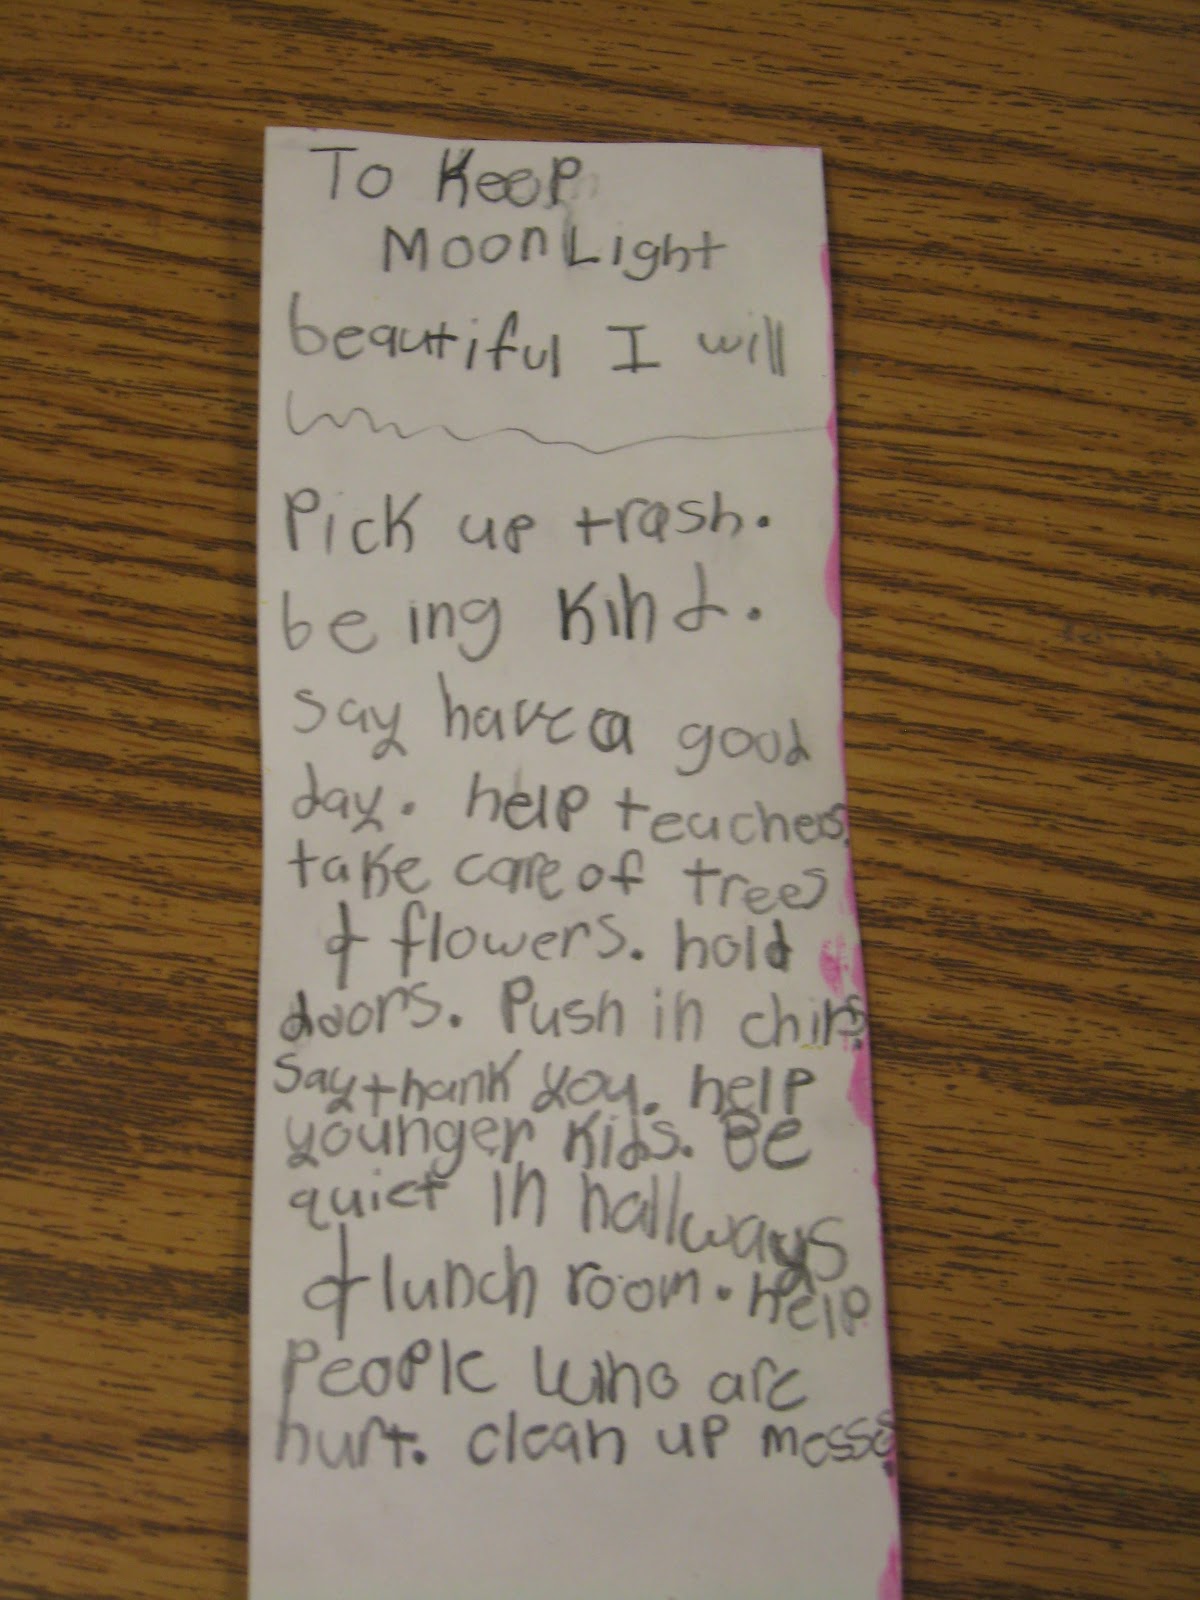 To Keep
MoonLight
beautiful I will
Pick up trash.
being Kind.
say have a good
day. help teachers.
take care of trees
& flowers. hold
doors. Push in chirs.
Say thank you. help
younger Kids. Be
quiet in hallways
& lunch room. help
People who are
hurt. clean up messes.